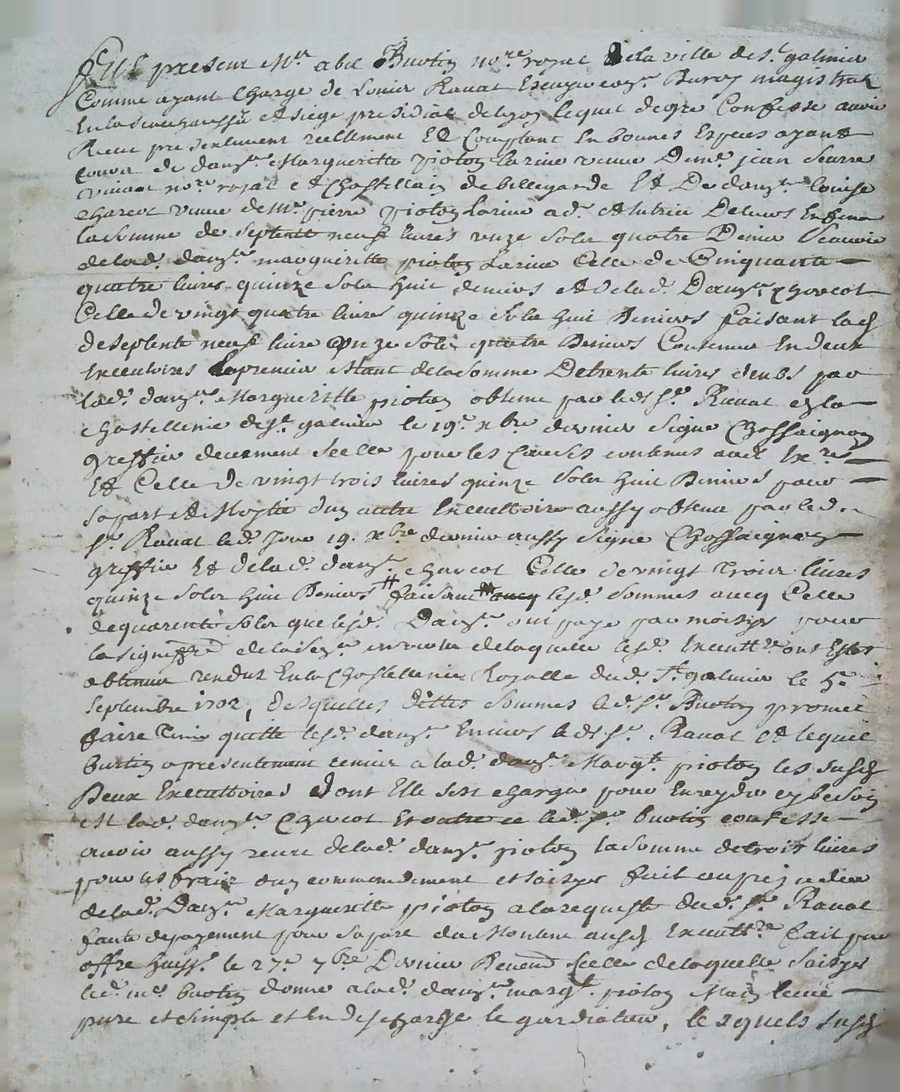 Fut present Mr abel Buotin nore royal de la ville de st galmier
Comme ayant charge de Louis Ravat Escuyer magistrat
En la senechaussé et siege presidial de lyon lequel de gre Confesse avoir
Receu presentement reellement Et Comptant En bonnes Especes ayant
cours de damlle Margueritte pioton Larive veuve De me jean
vivant nore royal et Chastellain de bellegarde Et De damlle louise
charcot veuve de Me pierre pioton Larive ad.
la somme de septente neuf livres unze solz quatre Denier Scavoir
de lad. damlle margueritte pioton Larive Celle de Cinquante
quatre livres quinze solz huit deniers et de lad. Damlle charcot
Celle de vingt quatre livres quinze solz huit Deniers faisant lad.
de septente neuf livre unze solz quatre Deniers Contenue En deux
Executoires Le premier Estant de la somme De trente livres deubs par
lad. damlle Margueritte pioton obtenu par led. sr. Ravat en la
chastellenie de st galmier le 19e xbre dernier signe Chassaignon
greffier deuement scelle pour les Causes contenues aud. Exre
Et Celle de vingt trois livres quinze solz huit Deniers pour
sa part et Moytie d'un autre Executtoire aussy obtenu par led.
sr. Ravat led. Jour 19. xbre dernier aussy signe Chassaignon
greffier Et de lad. damlle charcot Celle de vingt trois livres
quinze solz huit Deniers faisant lesd. sommes avecq Celle
de quarente solz que lesd. Damlles ont paye par moityé pour
la de la en vertu de laquelle lesd. Executtres ont Estes
obtenue rendue En la Chastellenie Royalle dud. St galmier le 5e
septembre 1702, desquelles dittes sommes led. sr. Buotin promet
faire tenir quitte lesd. damlles Envers led. sr. Ravat et lequel
Buotin a presentement remis a lad. damlle Margte pioton les susd.
Deux Executtoires dont Elle sest chargée pour En ayder au besoin
est lad. damlle Charcot Et outre ce led. sr. buotin confesse
avoir aussy receu de lad. damlle pioton la somme de trois livres
pour les fraix d'un commendement et saisye fait au prejudice
de lad. Damlle Margueritte pioton a la requeste dud. sr. Ravat
faute de payement pour sa part du Montent ausd. Executtre fait par
offre huissr. le 27e 7bre Dernier de laquelle saisye
led. me. buotin donne a lad. damlle margte pioton Main levée
pure et simple et En descharge le gardiateur, lesquels susd.